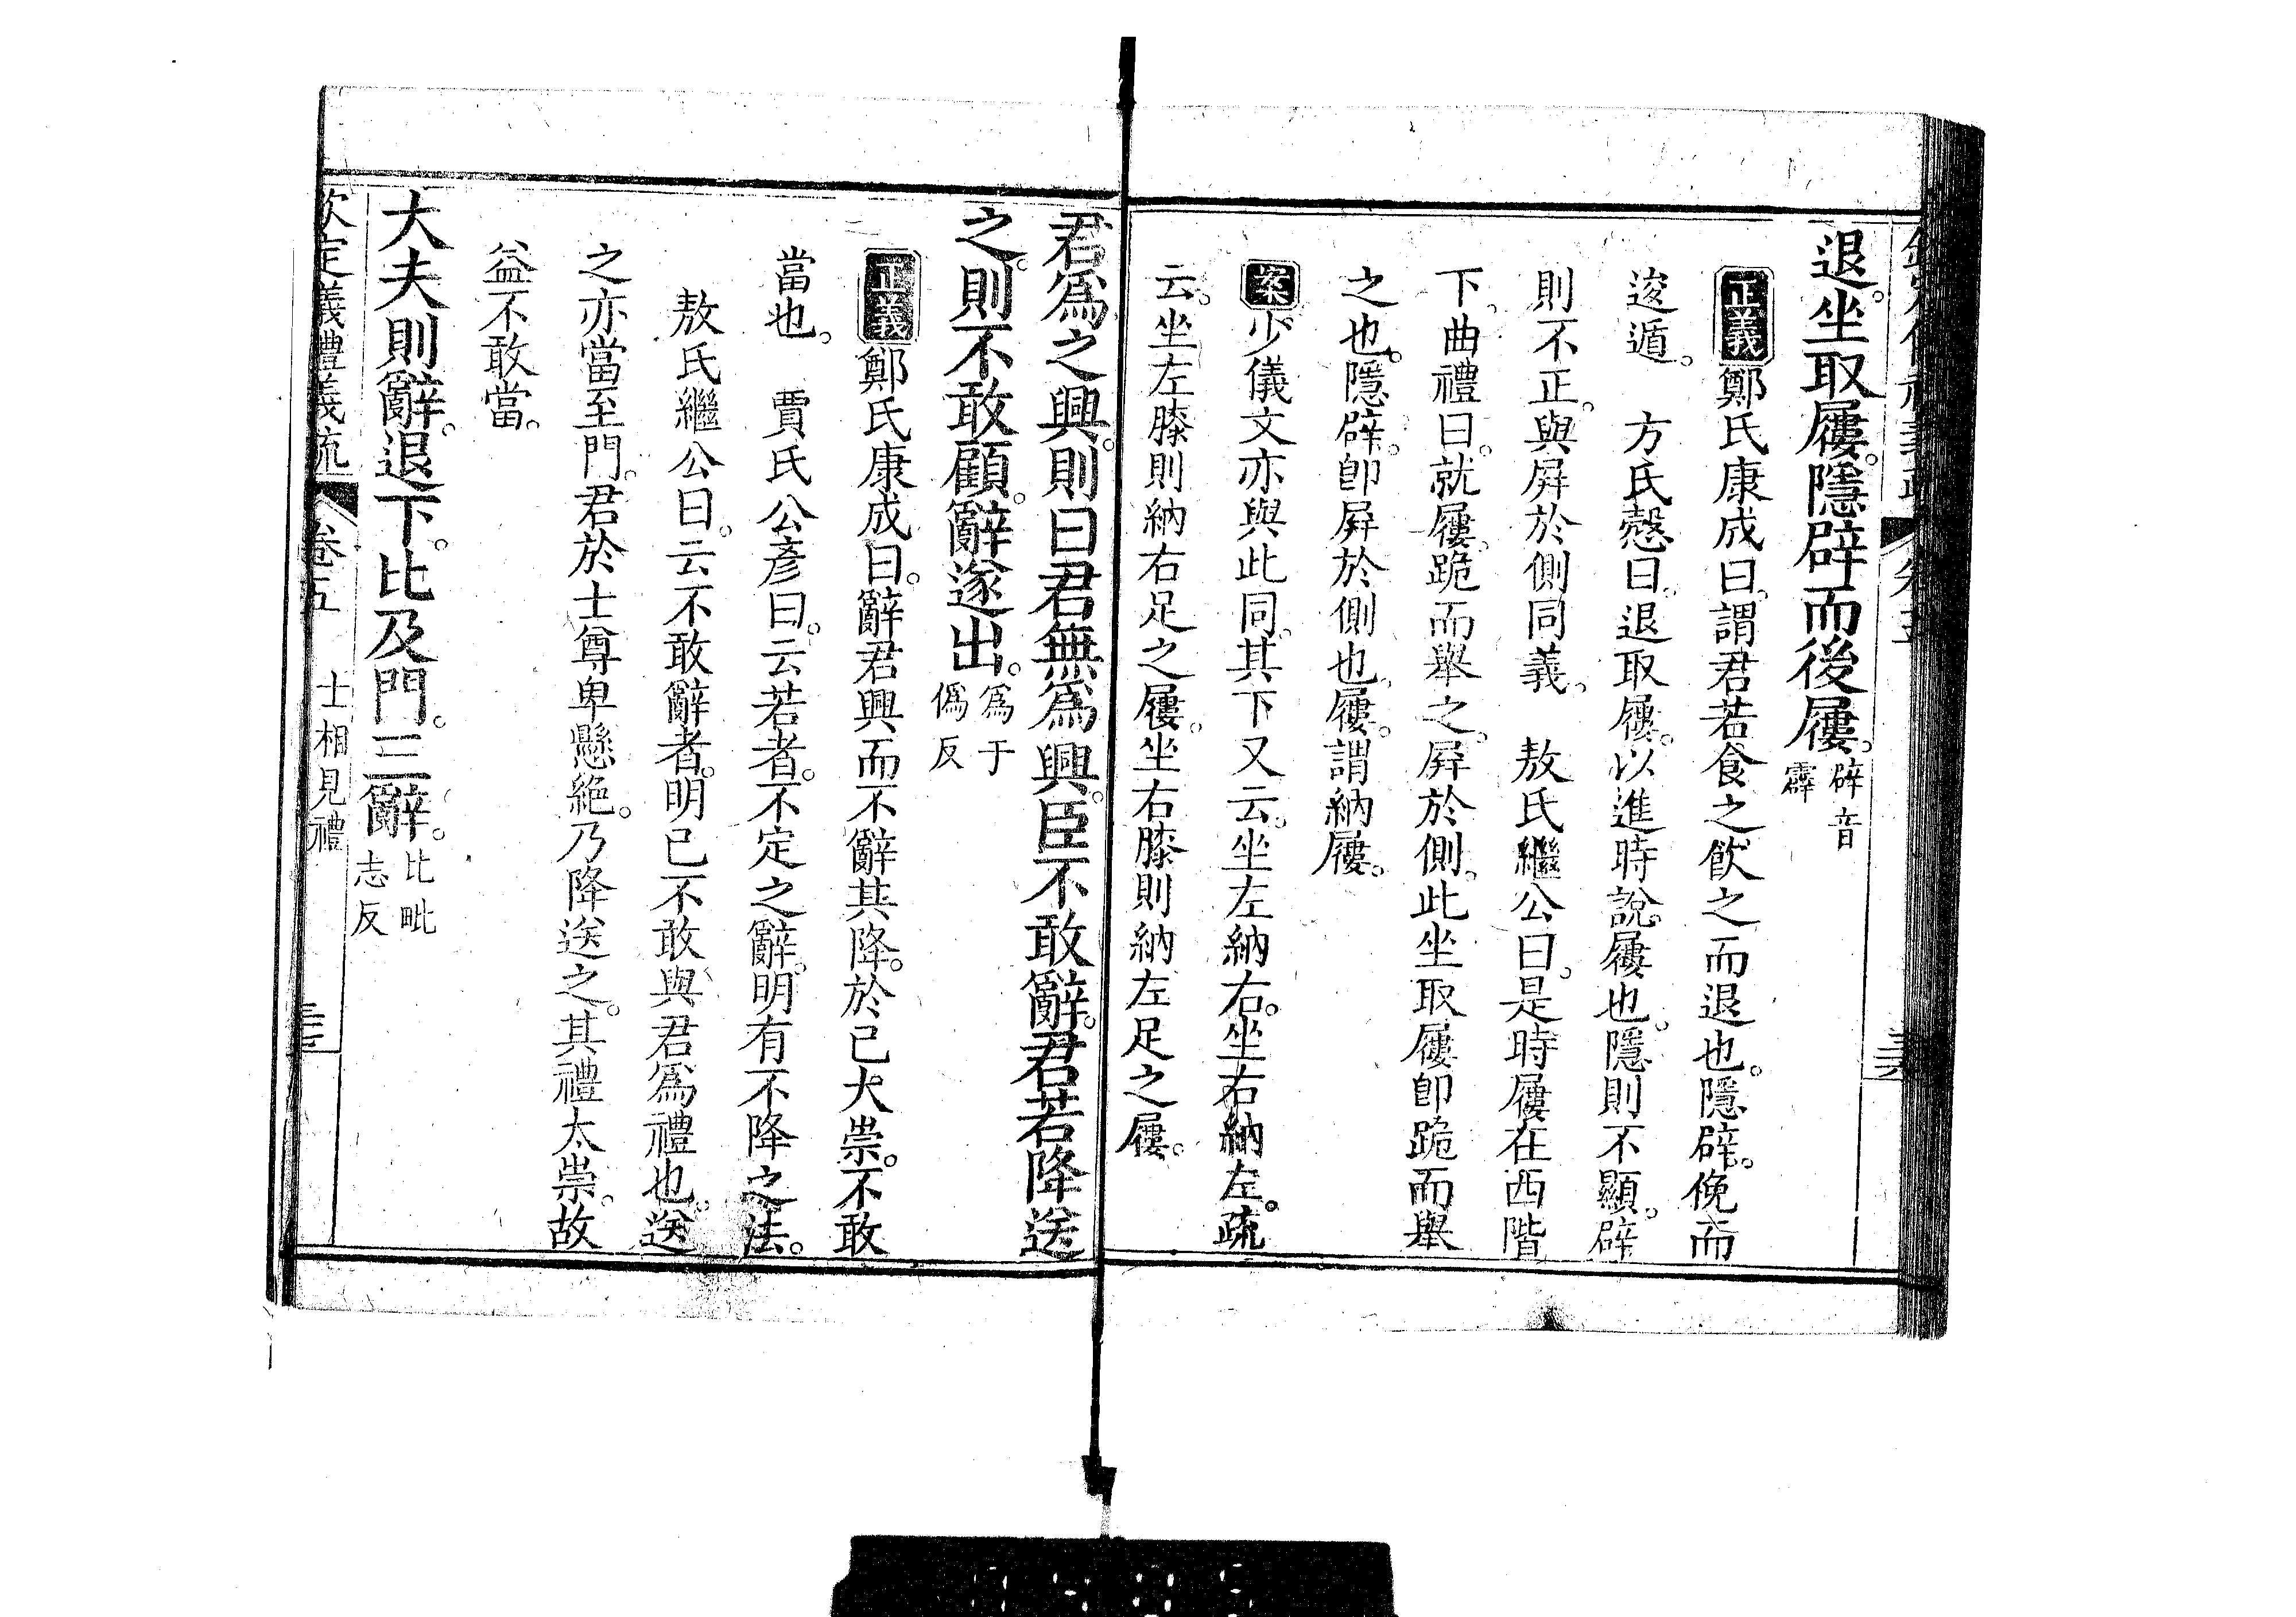 退。坐取屨。隱辟而後屨。辟音霹
正義鄭氏康成曰。謂君若食之飲之而退也。隱辟。俛而
逡遁。　方氏愨曰。退取屨。以進時說屨也。隱則不顯。辟
則不正。與屏於側同義。　敖氏繼公曰。是時屨在西階
下。曲禮曰。就屨。跪而舉之。屏於側。此坐取屨卽跪而舉
之也。隱辟。卽屏於側也。屨。謂納屨。
案少儀文亦與此同。其下又云。坐左納右。坐右納左。疏
云。坐左膝則納右足之屨。坐右膝則納左足之屨。
君爲之興。則曰君無爲興。臣不敢辭。君若降送
之。則不敢顧。辭遂出。爲于僞反
正義鄭氏康成曰。辭君興而不辭其降。於己大崇。不敢
當也。　賈氏公彥曰。云若者。不定之辭。明有不降之法。
敖氏繼公曰。云不敢辭者。明已不敢與君爲禮也。送
之亦當至門。君於士尊卑懸絕。乃降送之。其禮太崇。故
益不敢當。
大夫則辭。退下。比及門。三辭。比毗志反
欽定儀禮義疏　卷五　士相見禮